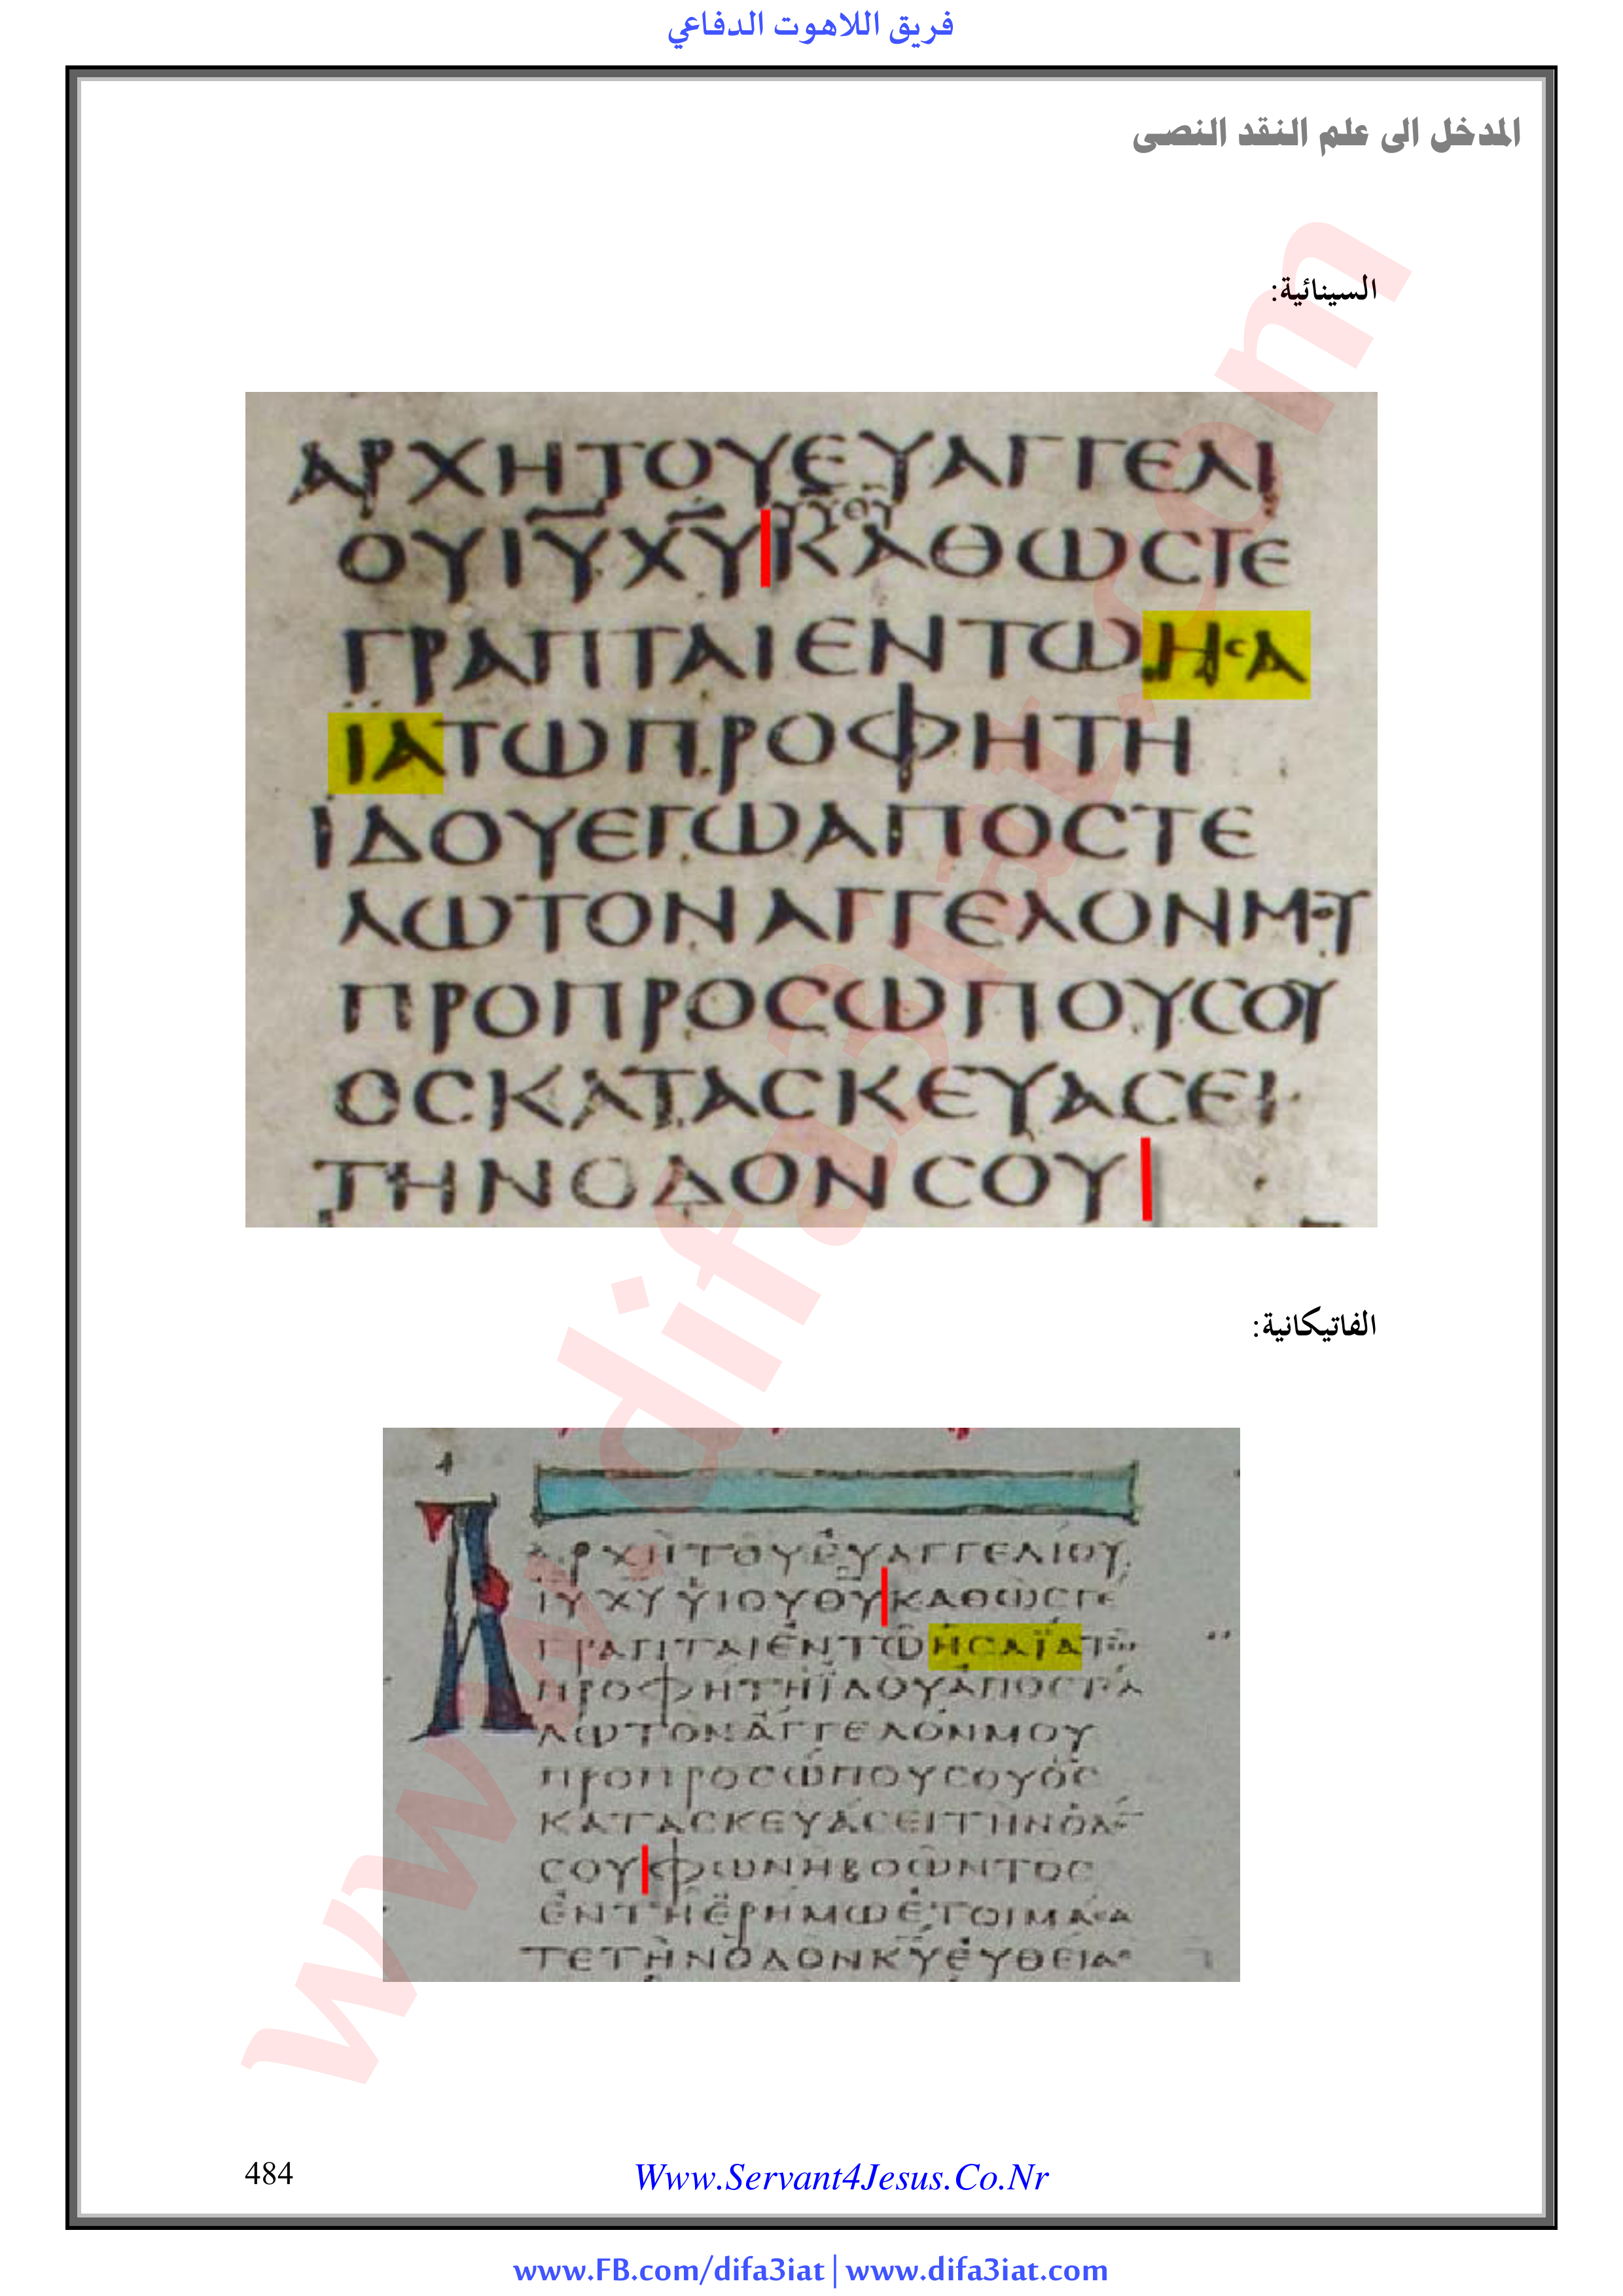 فريق اللاهوت الدفاعي
المدخل الى علم النقد النصى
السينائية:
ΑΡΧΗΤΟΥΕΥΑΓΓΕΛΙ
ΥΥΘΥ
ΟΥΙΥΧΥΚΑΘΩϹΓΕ
ΓΡΑΠΤΑΙΕΝΤΩΗϹΑ
ΪΑΤΩΠΡΟΦΗΤΗ
ΙΔΟΥΕΓΩΑΠΟϹΤΕ
ΛΩΤΟΝΑΓΓΕΛΟΝΜΟΥ
ΠΡΟΠΡΟϹΩΠΟΥϹΟΥ
ΟϹΚΑΤΑϹΚΕΥΑϹΕΙ
ΤΗΝΟΔΟΝϹΟΥ
الفاتيكانية:
ΑΡΧΗΤΟΥΕΥΑΓΓΕΛΙΟΥ
ΙΥ ΧΥ ΥΙΟΥΘΥΚΑΘΩϹΓΕ
ΓΡΑΠΤΑΙΕΝΤΩΗϹΑΪΑΤΩ
ΠΡΟΦΗΤΗΪΔΟΥΑΠΟϹΤΕΛ
ΛΩΤΟΝΑΓΓΕΛΟΝΜΟΥ
ΠΡΟΠΡΟϹΩΠΟΥϹΟΥΟϹ
ΚΑΤΑϹΚΕΥΑϹΕΙΤΗΝΟΔΟ
ϹΟΥΦΩΝΗΒΟΩΝΤΟϹ
ΕΝΤΗΕΡΗΜΩΕΤΟΙΜΑϹΑ
ΤΕΤΗΝΟΔΟΝΚΥΕΥΘΕΙΑϹ
www.difa3iat.com
484
Www.Servant4Jesus.Co.Nr
www.FB.com/difa3iat | www.difa3iat.com